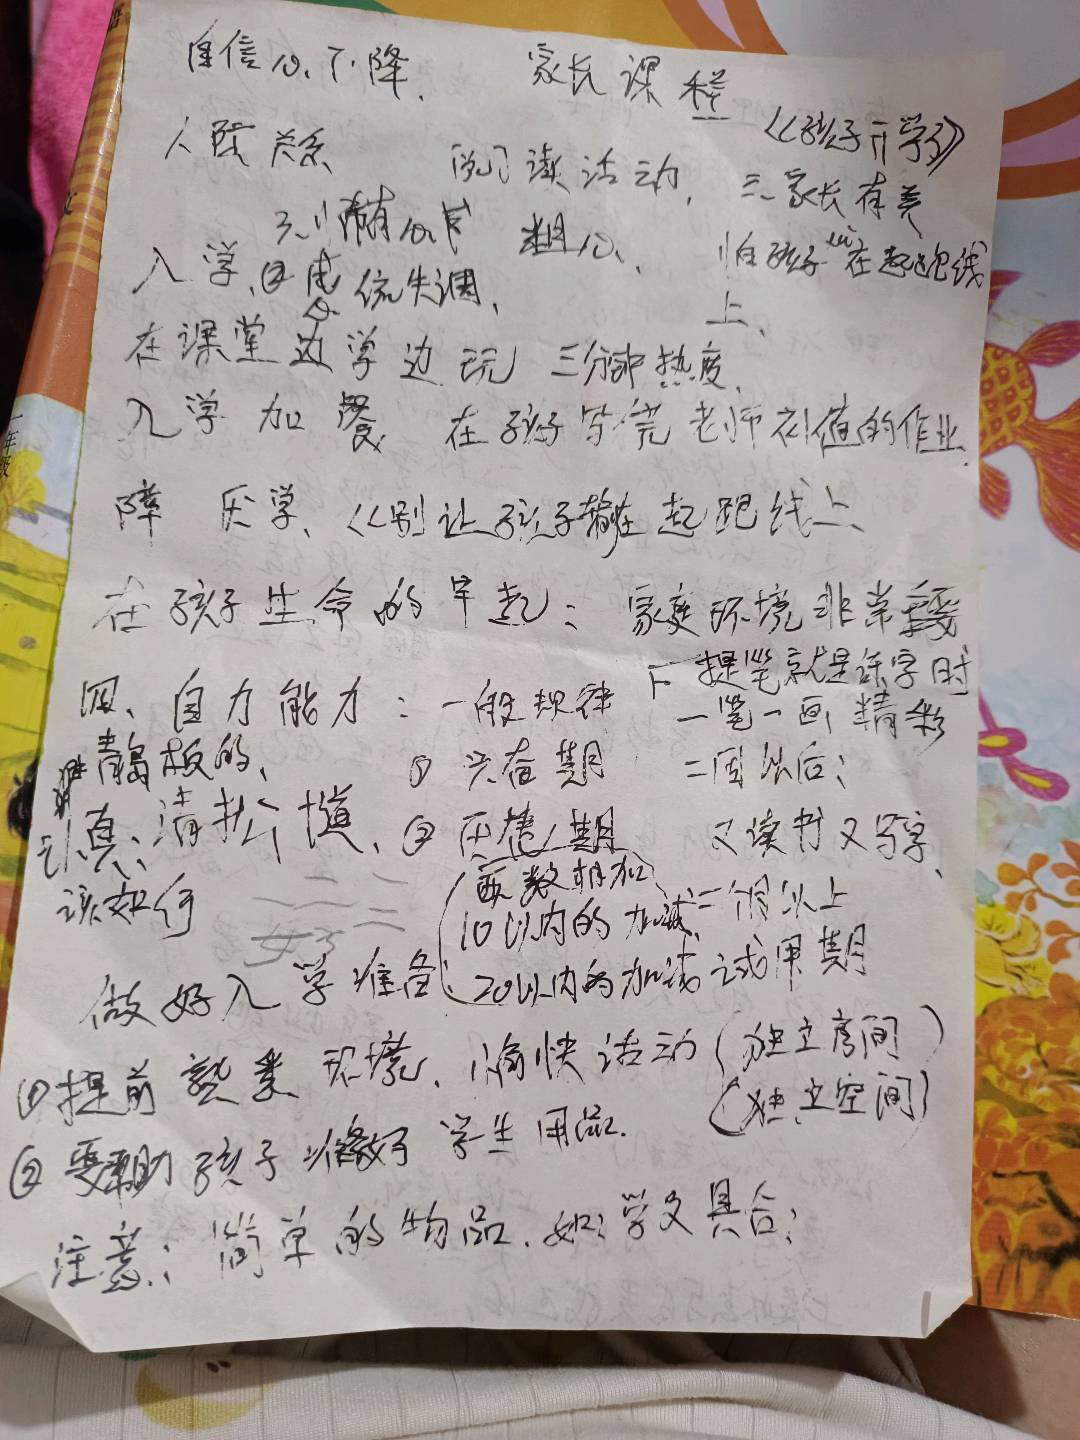 自信心下降、 家长课程
《孩子开学了》
人际关系 阅读活动, 三家长有关
粗心、 怕孩子输在起跑线
上、
入学、②感统失调、
在课堂边学边玩 三分钟热度、
入学加餐 在孩子写完老师布值的作业
障 厌学、《别让孩子输在起跑线上、
在孩子生命的早起: 家庭环境非常重要
四、自力能力: 一般规律
提笔就是练字时
一笔一画精彩
① 兴奋期 二周以后;
认真: 清扒 ② 厌倦期 又读书又写字、
该如何
两数相加
10以内的加减 二个月以上
20以内的加减 试用期
做好入学准备
①提前熟悉环境、愉快活动(独立房间)
(独立空间)
②要帮助孩子准备好学生用品.
注意: 简单的物品.如:学文具合;
一年级